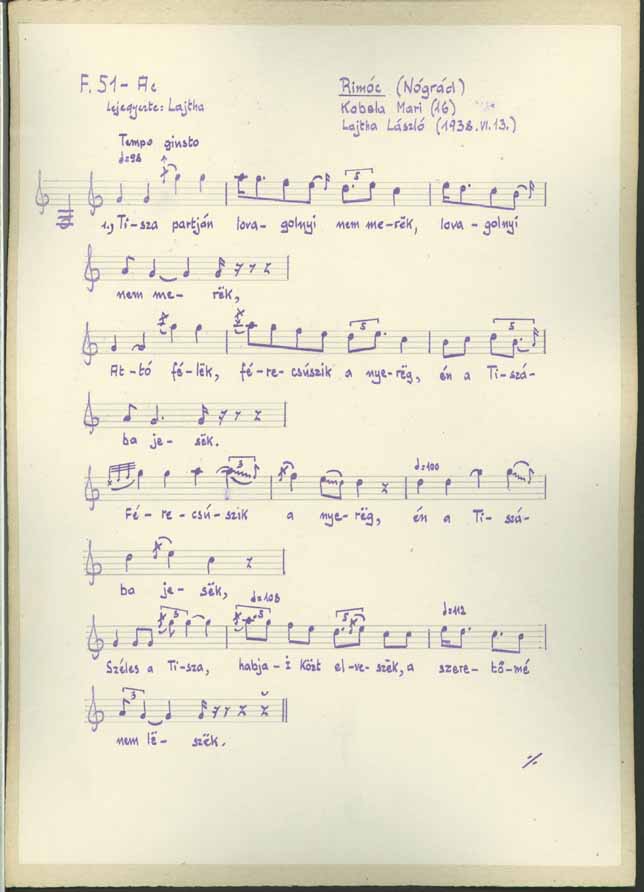 F. 51- Ac
Rimóc (Nógrád)
Lejegyezte: Lajtha
Kobela Mari (16)
Lajtha László (1938.VI.13.)
Tempo giusto
♩=98
5
1., Ti-sza partján lova- golnyi nem me-rëk, lova- golnyi
nem me- rëk,
5 5
At-tó fé-lëk, fé-re-csúszik a nye-rëg, én a Ti-szá-
ba je- sëk.
3 ♩=100
Fé-re-csú-szik a nye-rëg, én a Ti-szá-
ba je- sëk,
♩=108 ♩=112
3 3 5
Széles a Ti-sza, habja-i közt el-ve-szëk, a szere-tő-mé
3
nem lë- szëk.
·/·